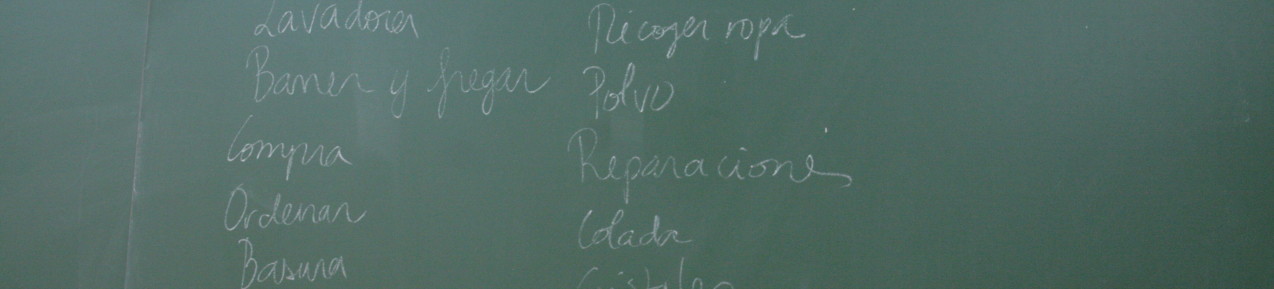 Lavadora
Barrer y fregar
Compra
Ordenar
Basura
Recoger ropa
Polvo
Reparaciones
Colada
Cristales